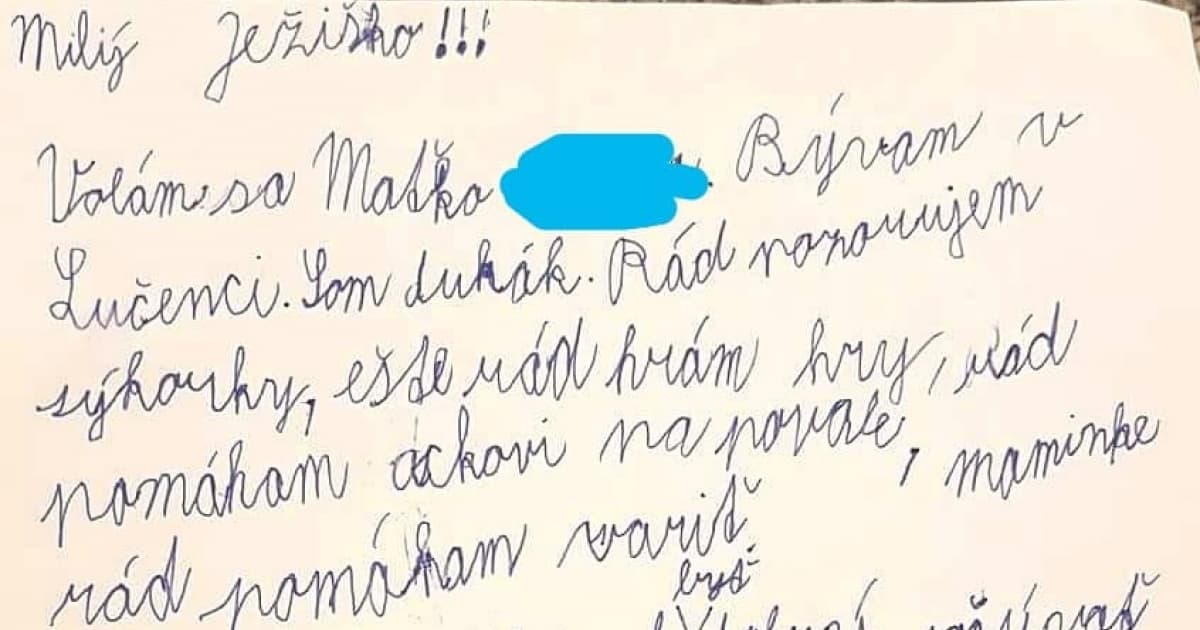 Milý Ježiško!!!
Volám sa Maťko . Bývam v
Lučenci. Som dukák. Rád rozorujem
sýkorky, ešte rád hrám hry, rád
pomáham ockovi na povale, maminke
rád pomáham variť
byť